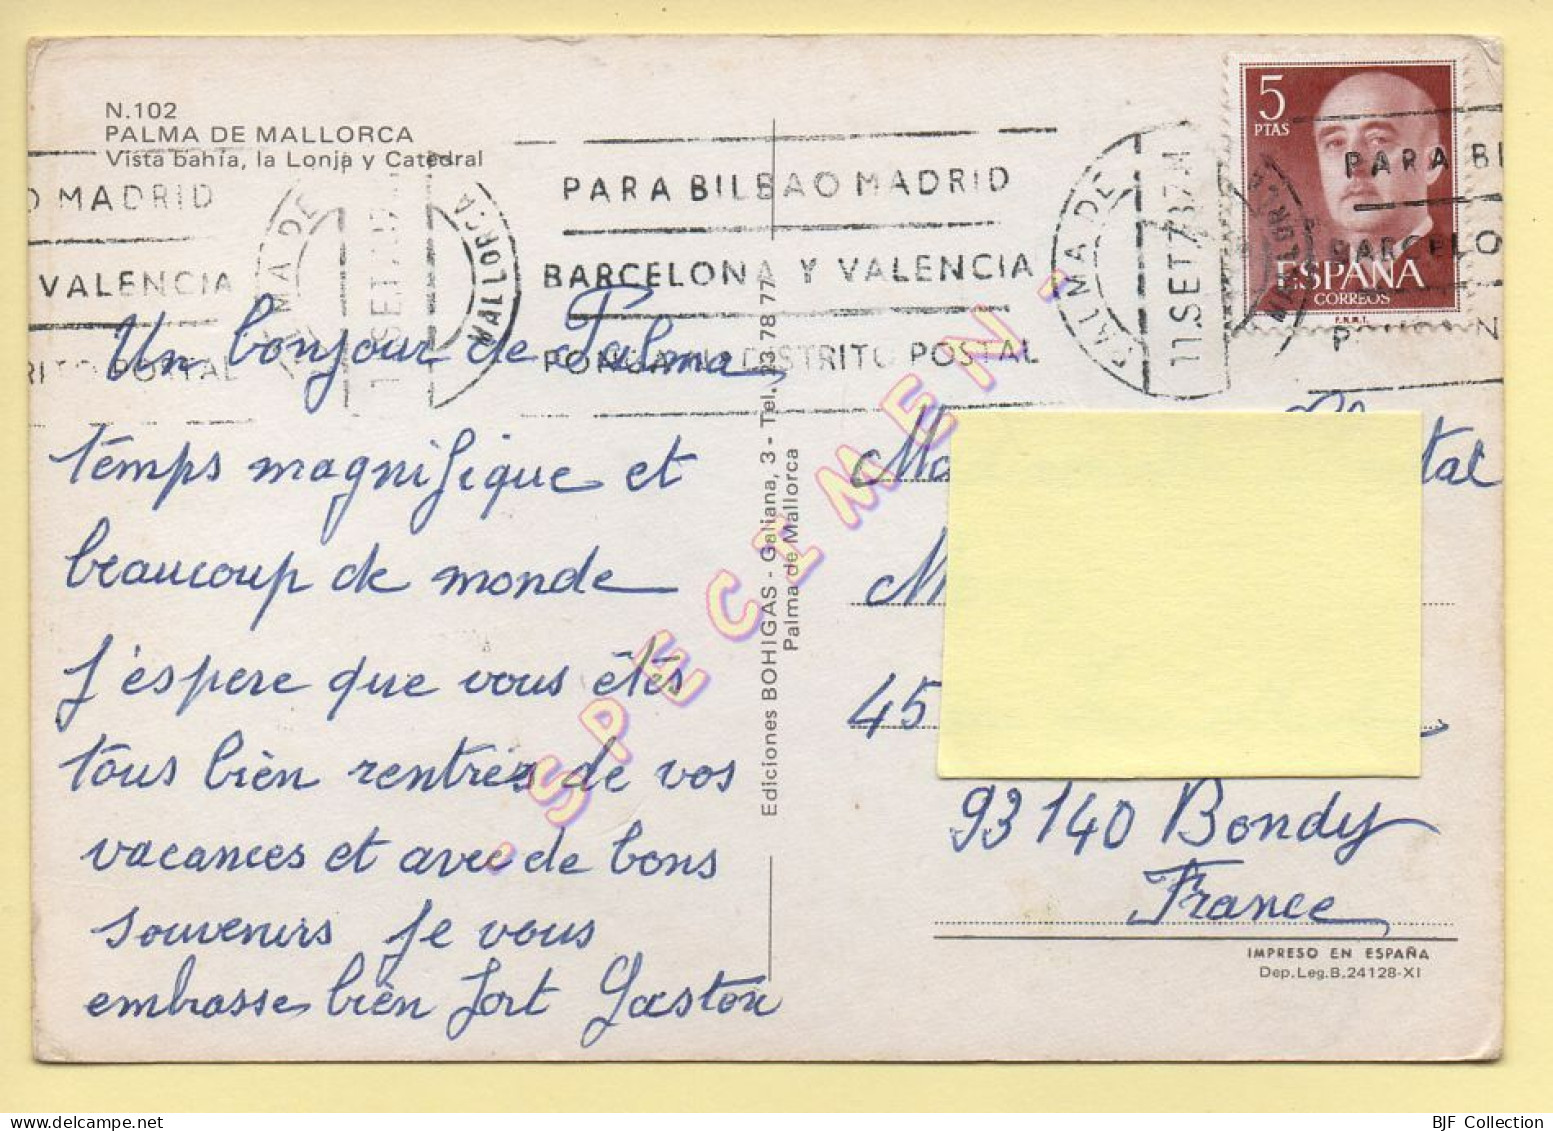 N.102
PALMA DE MALLORCA
Vista bahía, la Lonja y Catedral
5
PTAS
ESPAÑA
CORREOS
F.N.M.T.
O MADRID
VALENCIA
RITO POSTAL
PALMA DE
MALLORCA
PARA BILBAO MADRID
BARCELONA Y VALENCIA
PONGA No DISTRITO POSTAL
PALMA DE
MALLORCA
11.SET
PARA BI
BARCELO
Un bonjour de Palma
temps magnifique et
beaucoup de monde
J'espere que vous êtes
tous bien rentrés de vos
vacances et avec de bons
souvenirs Je vous
embrasse bien fort Gaston
Ediciones BOHIGAS - Galiana, 3 - Tel. 23 78 77
Palma de Mallorca
- SPECIMEN -
45
93140 Bondy
France
IMPRESO EN ESPAÑA
Dep.Leg.B.24128-XI
BJF Collection